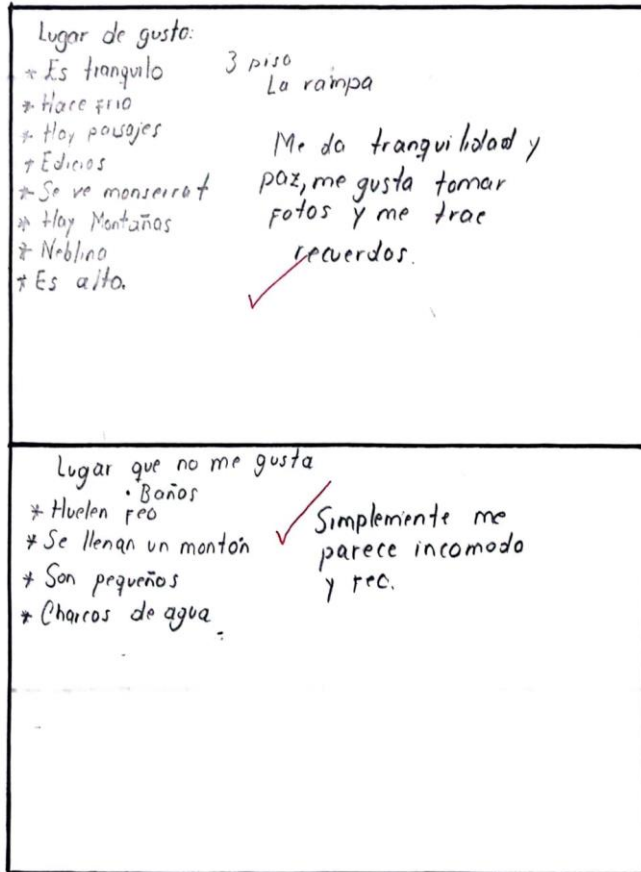 Lugar de gusto:
* Es tranquilo
* Hace frio
* Hay paisajes
* Edicios
* Se ve monserrat
* Hay Montañas
* Neblina
* Es alto.
3 piso
La rampa
Me da tranquilidad y
paz, me gusta tomar
fotos y me trae
recuerdos.
Lugar que no me gusta
· Baños
* Huelen feo
* Se llenan un montón
* Son pequeños
* Charcos de agua
Simplemente me
parece incomodo
y feo.